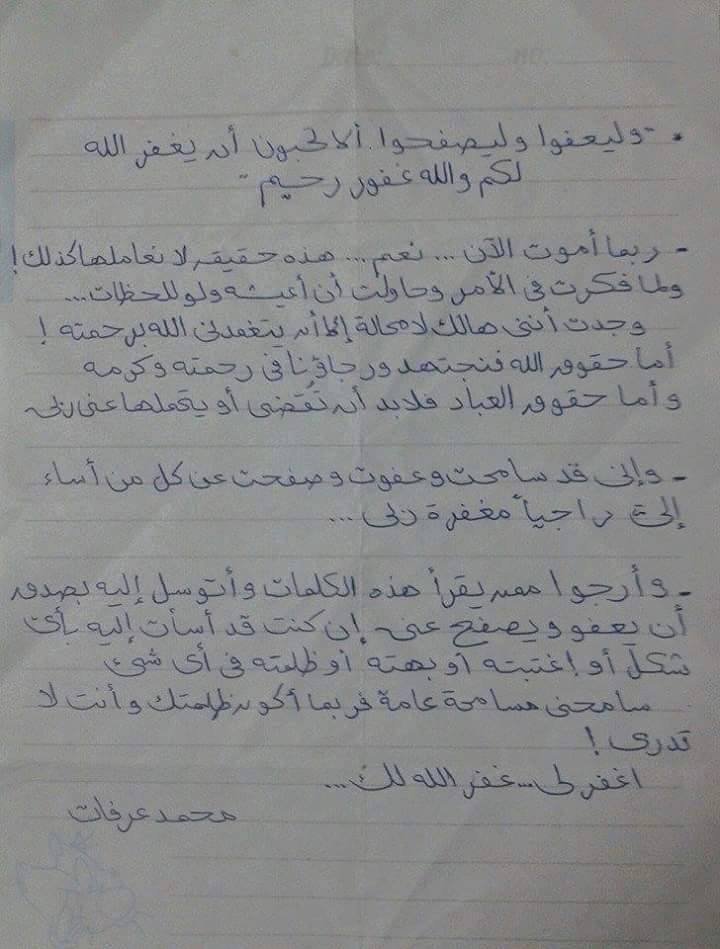 • "وليعفوا وليصفحوا ألا تحبون أن يغفر الله
لكم والله غفور رحيم"
- ربما أموت الآن ... نعم ... هذه حقيقه لا نعاملها كذلك !
ولما فكرت في الأمر وحاولت أن أعيشه ولو للحظات ...
وجدت أننى هالك لا محالة إلا أن يتغمدنى الله برحمته !
أما حقوق الله فنجتهد ورجاؤنا في رحمته وكرمه
وأما حقوق العباد فلابد أن تُقضى أو يتحملها عنى ربى
- وإنى قد سامحت وعفوت وصفحت عن كل من أساء
إلىّ راجياً مغفرة ربى ...
- وأرجوا ممن يقرأ هذه الكلمات وأتوسل إليه بصدق
أن يعفو ويصفح عنى إن كنت قد أسأت إليه بأى
شكل أو إغتبته أو بهته أو ظلمته فى أى شئ
سامحنى مسامحة عامة فربما أكون ظلمتك وأنت لا
تدرى !
اغفر لى ... غفر الله لك ...
محمد عرفات